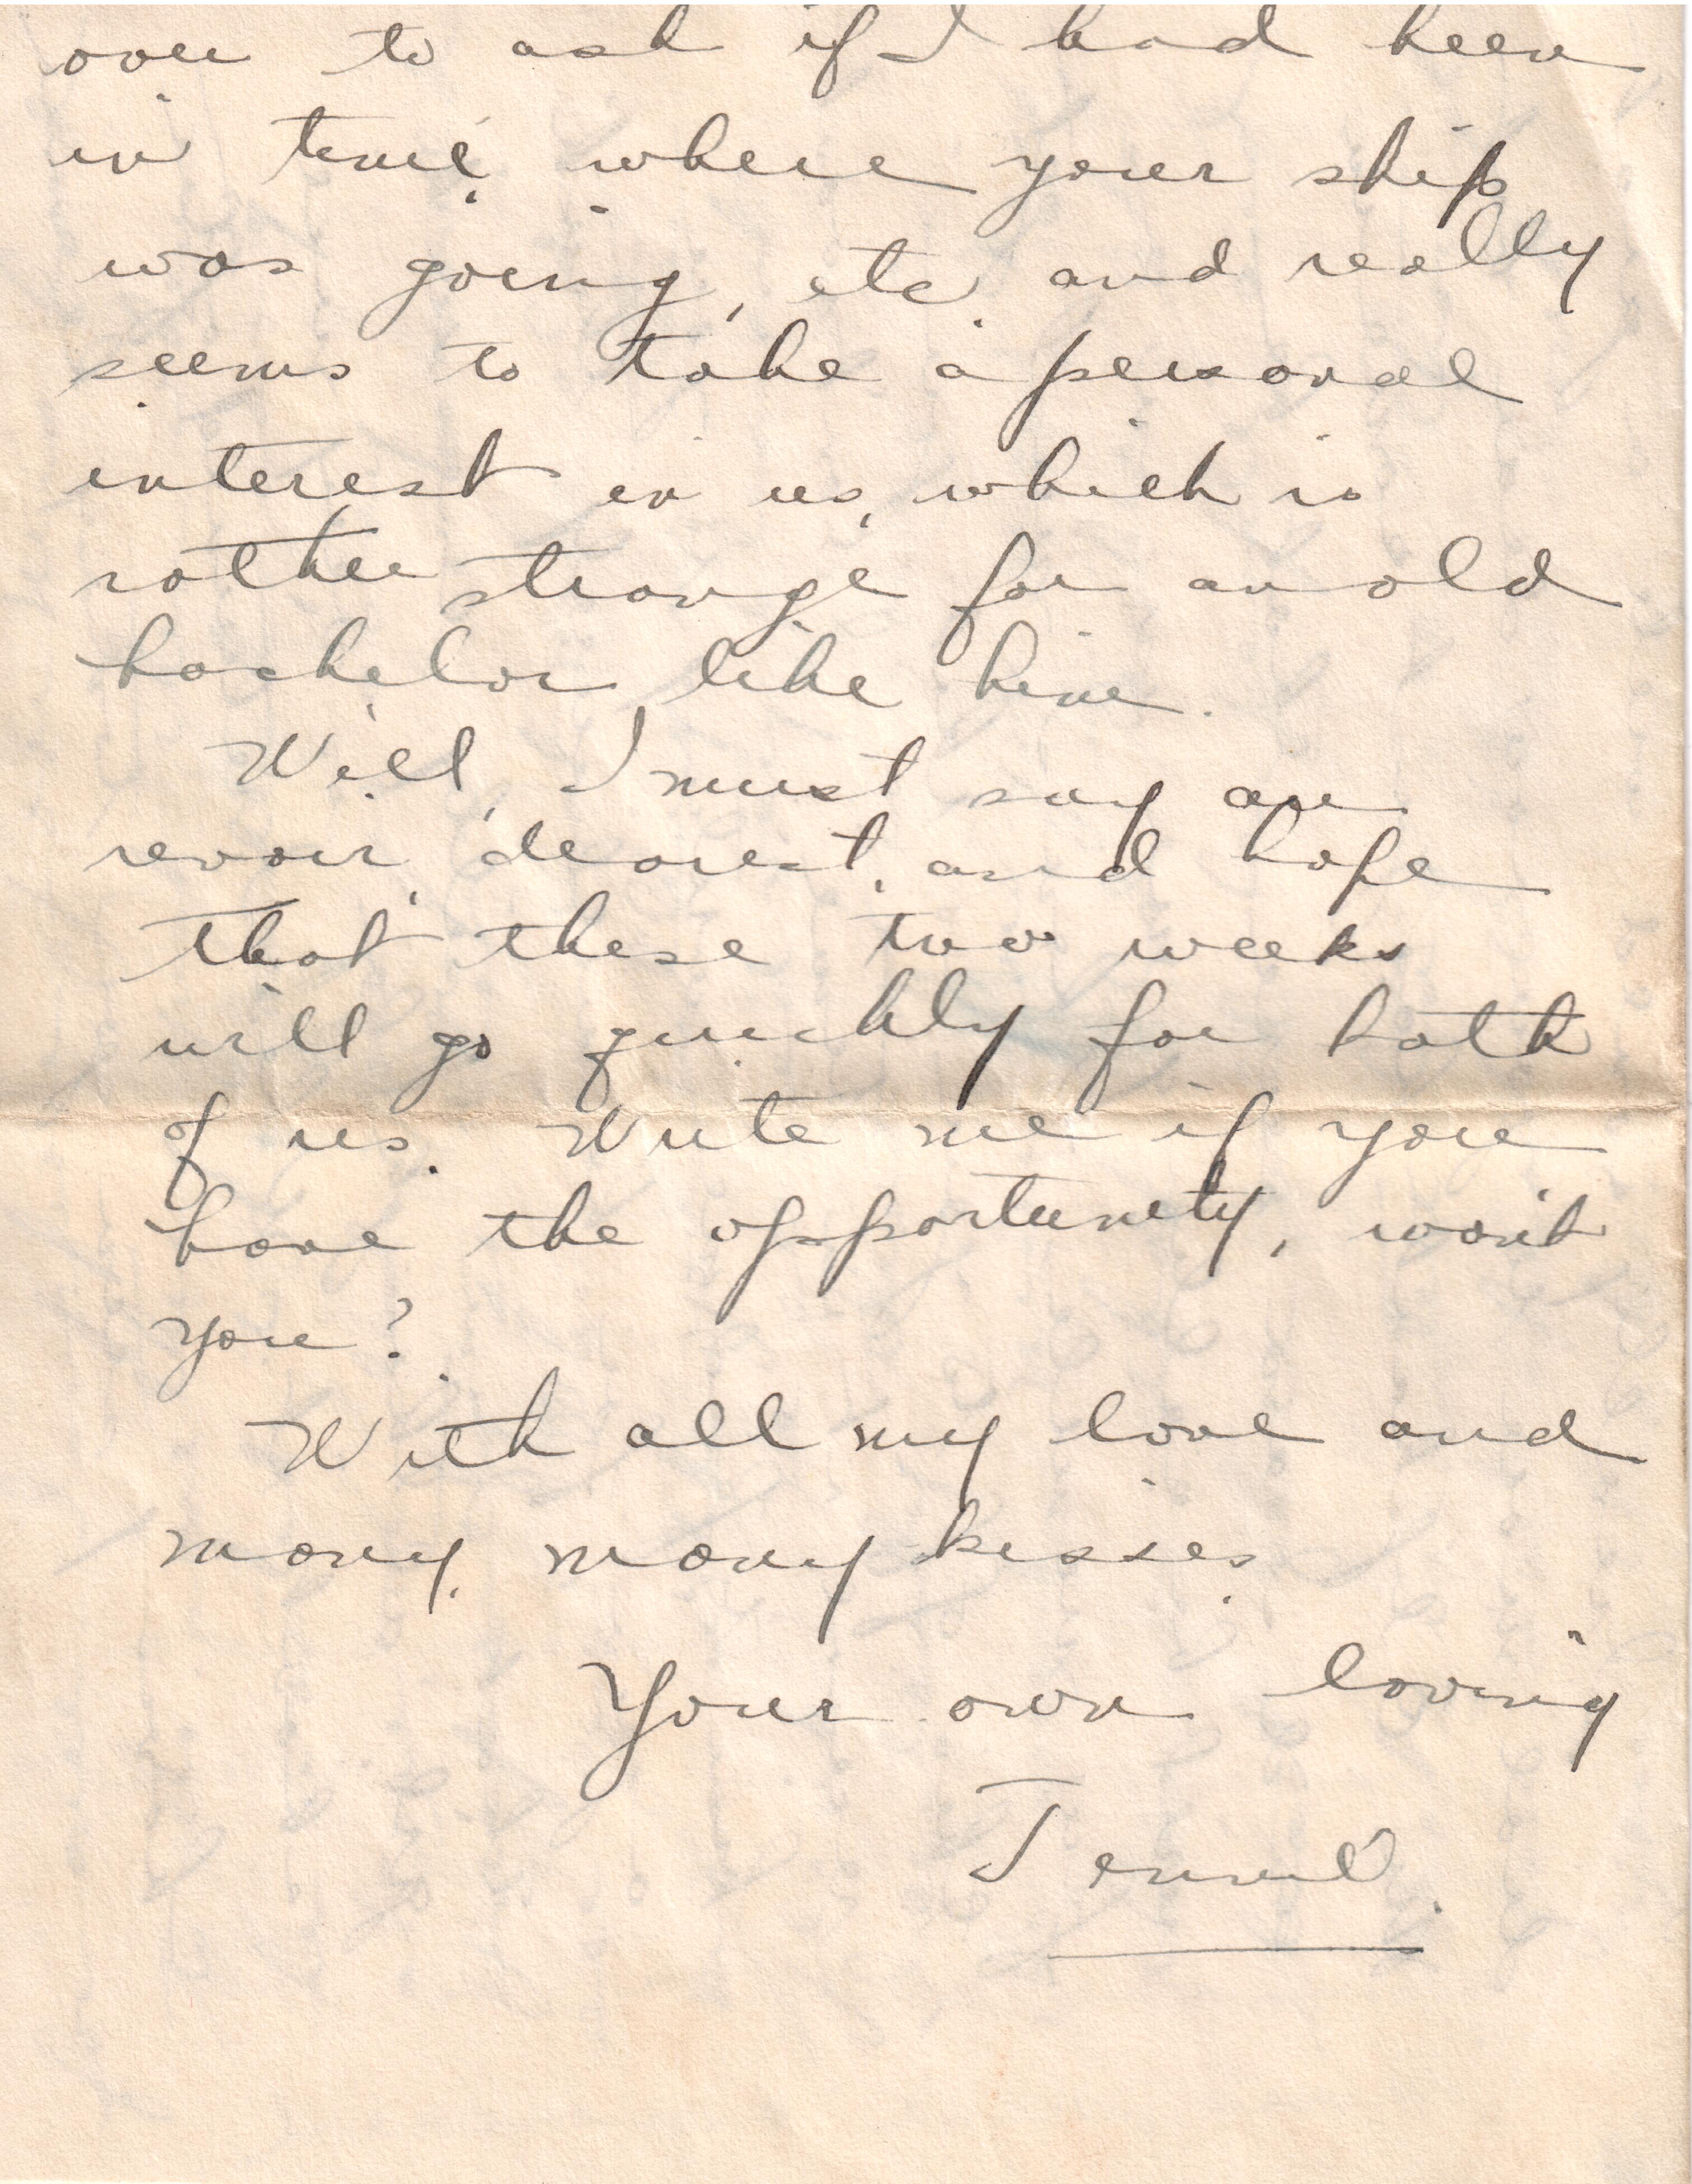 over to ask if I had been
in time, where your ship
was going, etc. and really
seems to take a personal
interest in us, which is
rather strange for an old
bachelor like him.
Well, I must say au
revoir, dearest, and hope
that these two weeks
will go quickly for both
of us. Write me if you
have the opportunity, won't
you?
With all my love and
many, many kisses,
Your own loving